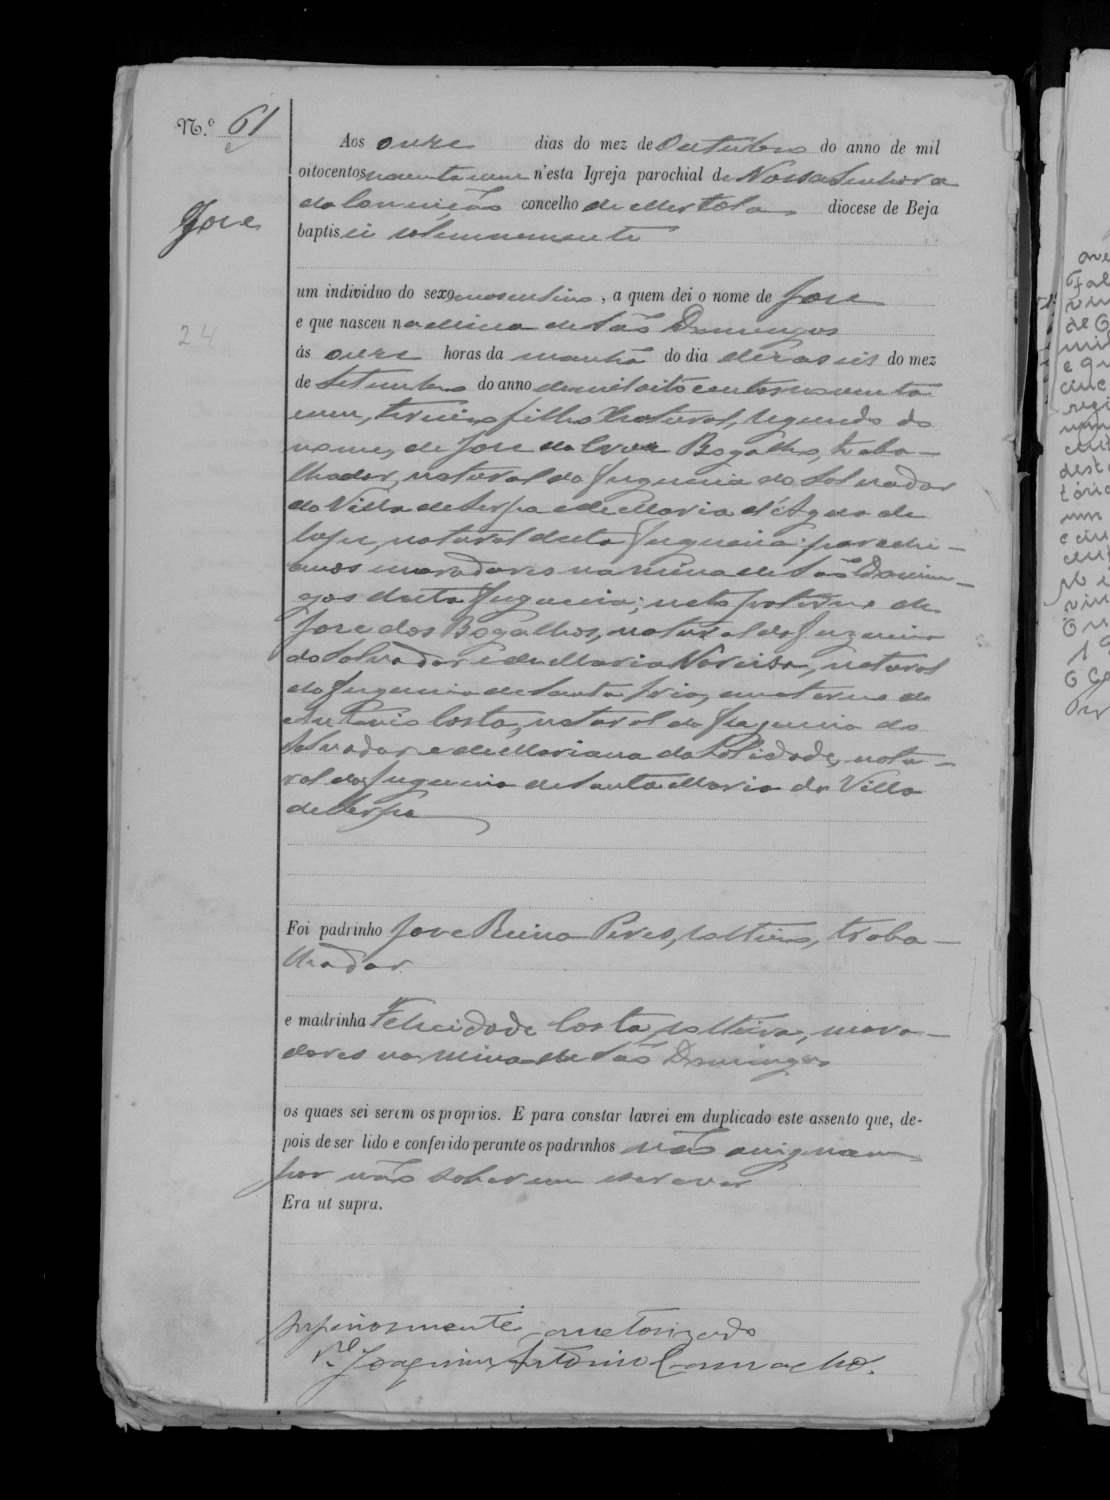 N.º 61
Aos onze dias do mez de Outubro do anno de mil
oitocentos noventa e um n'esta Igreja parochial de Nossa Senhora
da Conceição concelho de Mertola diocese de Beja
baptisei solemnemente
José
um individuo do sexo masculino, a quem dei o nome de José
e que nasceu na Mina de São Domingos
24
ás onze horas da manhã do dia dezaseis do mez
de Setembro do anno de mil oito centos noventa
e um, terceiro filho natural, segundo do
nome, de José da Cruz Bogalho, traba-
lhador, natural da freguezia do Salvador
da Villa de Serpa e de Maria d'Agua de
Lupe, natural desta freguezia: parochi-
anos moradores na Mina de São Domin-
gos desta freguezia; neto paterno de
José dos Bogalhos, natural da freguezia
do Salvador e de Maria Narcisa, natural
da freguezia de Santa Iria, e materno de
Antonio Costa, natural da freguezia do
Salvador e de Mariana da Solidade, natu-
ral da freguezia de Santa Maria da Villa
de Serpa
Foi padrinho José Peres, solteiro, traba-
lhador
e madrinha Felicidade Costa, solteira, mora-
dores na Mina de São Domingos
os quaes sei serem os proprios. E para constar lavrei em duplicado este assento que, de-
pois de ser lido e conferido perante os padrinhos não assignam
por não saberem escrever
Era ut supra.
Superiormente auctorizado
Joaquim Antonio Camacho.